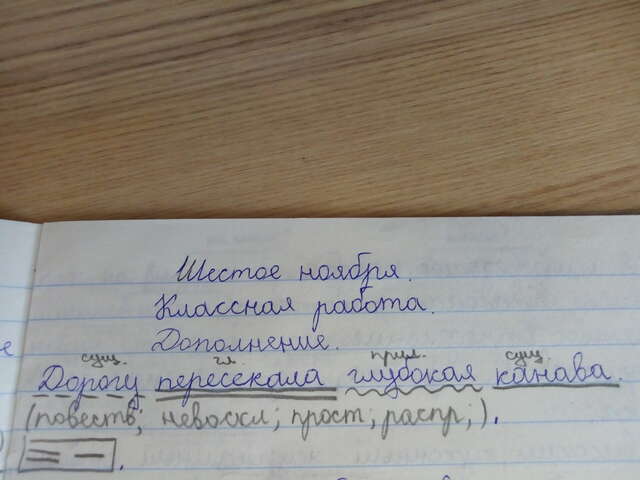 Шестое ноября.
Классная работа.
Дополнение.
сущ. гл. прил. сущ.
Дорогу пересекала глубокая канава.
(повеств; невоскл; прост; распр;).